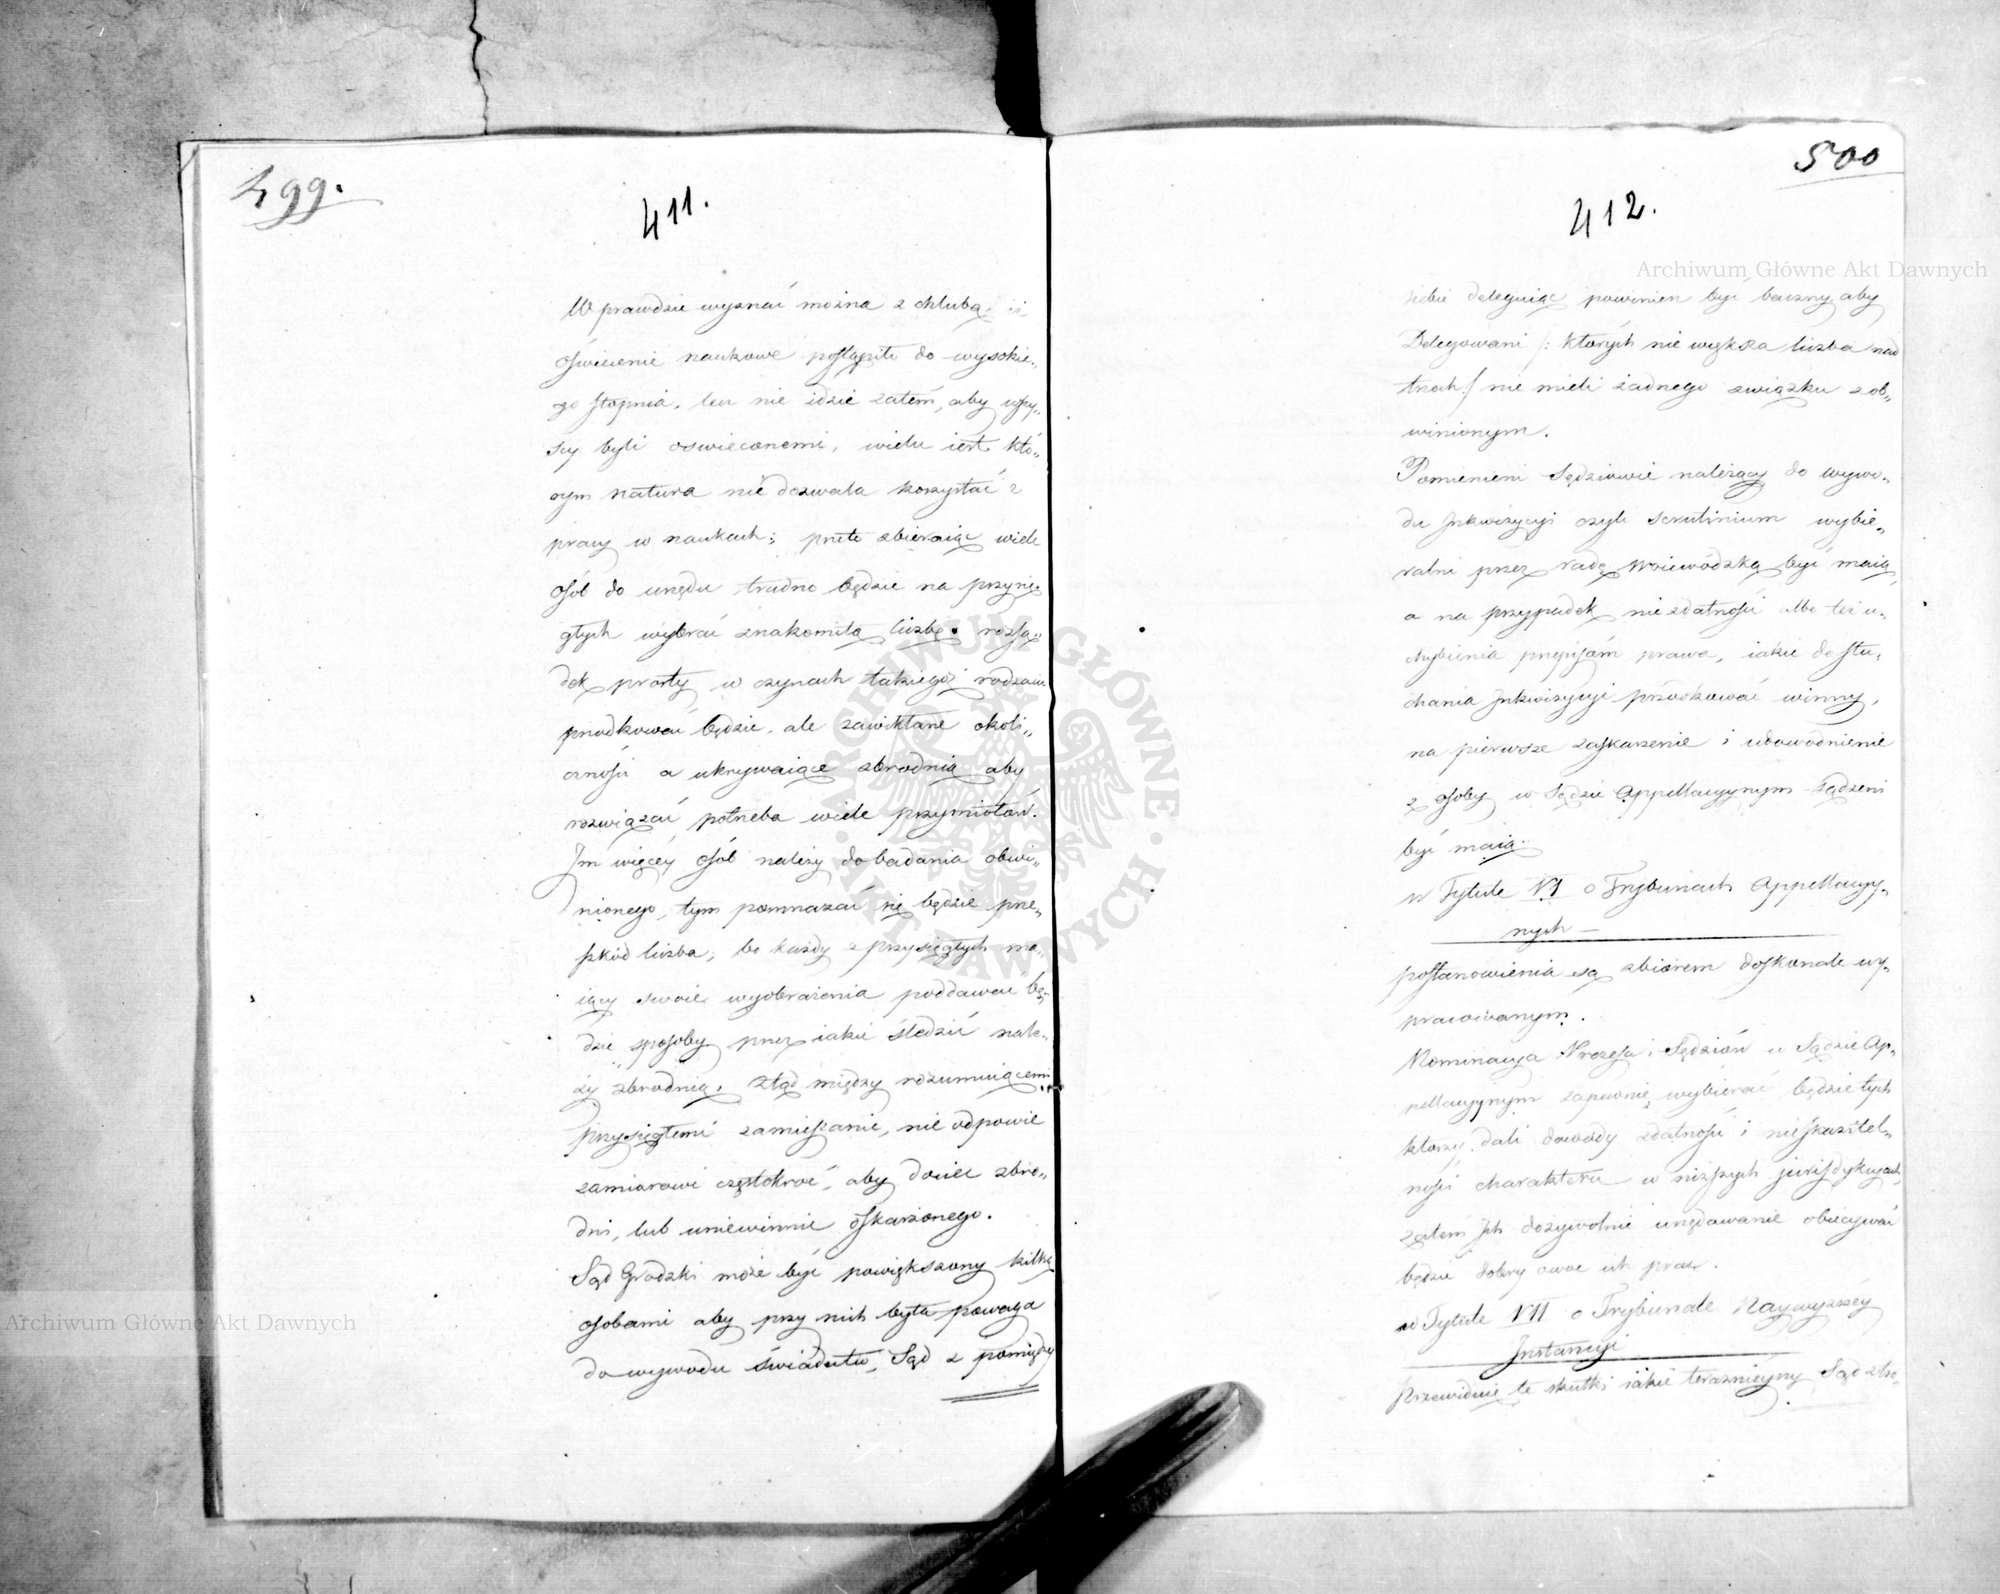 499.
411.
W prawdzie wyznać można z chlubą iż
oświecenie naukowe postąpiło do wysokie„
go stopnia, lecz nie idzie zatém, aby wszy„
scy byli oswieconemi, wielu iest któ„
rym natura nie dozwala korzystać z
pracy w naukach; przeto zbieraiąc wiele
osób do urzędu trudno będzie na przysię„
głych wybrać znakomitą liczbę. rozsą„
dek prosty w czynach takiegoż rodzaiu
przodkować będzie, ale zawikłane okoli„
czności a ukrywaiące zbrodnią aby
rozwiązać potrzeba wiele przymiotów.
Im więcéy osób należy do badania obwi„
nionego, tym pomnażać się będzie prze„
szkód liczba; bo każdy z przysięgłych ma„
iący swoie wyobrażenia poddawać bę„
dzie sposoby przez iakie śledzić nale„
ży zbrodnią. Ztąd między rozumuiącemi
przysięgłemi zamieszanie, nie odpowie
zamiarowi częstokroć, aby dociec zbro„
dni, lub uniewinnić oskarżonego.
Sąd Grodzki może być powiększony kilką
osobami aby przy nich była powaga
do wywodu świadectw, Sąd z pomiędzy
500
412.
siebie deleguiąc powinien być baczny aby
Delegowani /: których nie większa liczba nad
trzech :/ nie mieli żadnego związku z ob„
winionym.
Pomienieni Sędziowie należący do wywo„
du Inkwizycyi czyli scrutinium wybie„
ralni przez radę Woiewódzką być maią,
a na przypadek niezdatności albo też u„
chybienia przepisóm prawa, iakie do słu„
chania Inkwizycyi przodkować winny,
na pierwsze zaskarżenie i udowodnienie
z osoby w Sądzie Appellacyynym sądzeni
być maią.
w Tytule VI o Trybunach Appellacyy„
nych —
postanowienia są zbiorem doskonale wy„
pracowanym.
Nominacya Prezesa i Sędziów w Sądzie Ap„
pellacyynym zapewnie wybierać będzie tych
którzy dali dowody zdatności i nieskazitel„
ności charakteru w niższych jurisdykcyach,
zatem Ich dożywotnie urzędowanie obiecywać
będzie dobry owoc ich prac.
w Tytule VII o Trybunale Naywyższéy
Instancyi
Przewidziéć te skutki iakie teraźnieyszy Sąd